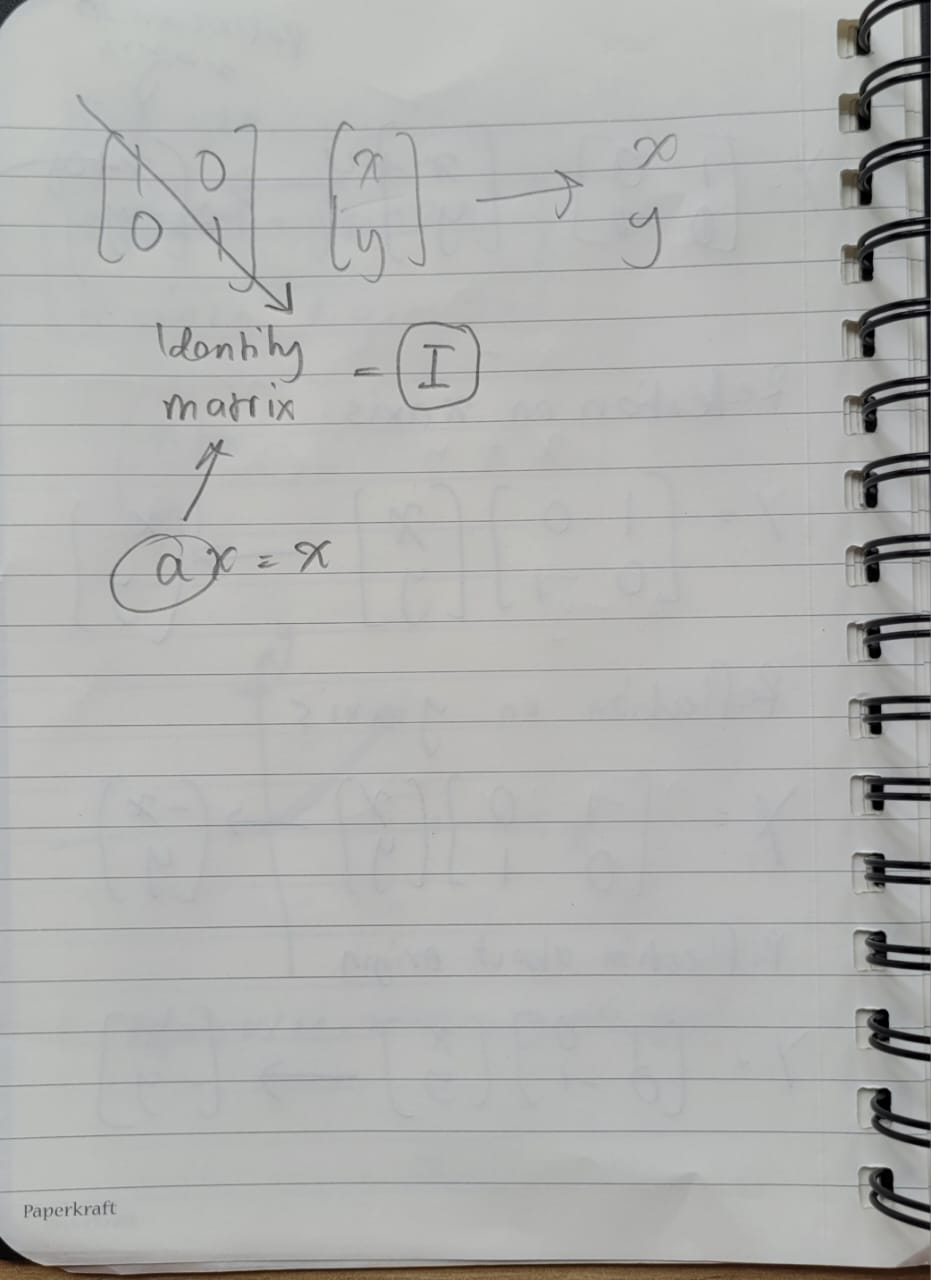 [1 0
0 1] [x
y] → x
y
Identity
matrix = I
ax = x
Paperkraft